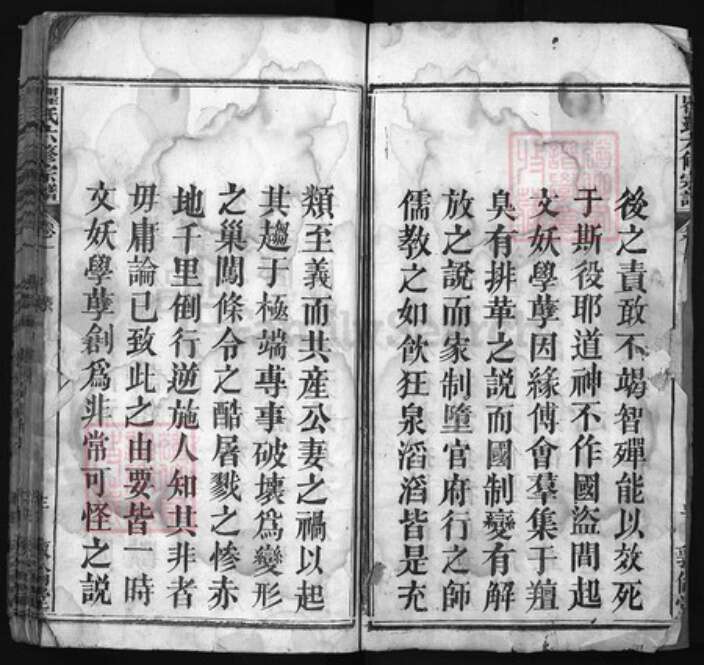 後之責敢不竭智殫能以效死
于斯役耶道神不作國盜間起
文妖學孽因緣傅會羣集于羶
臭有排革之說而國制變有解
放之說而家制墮官府行之師
儒教之如飲狂泉滔滔皆是充
類至義而共産公妻之禍以起
其趨于極端專事破壞爲變形
之巢闖條令之酷屠戮之慘赤
地千里倒行逆施人知其非者
毋庸論已致此之由要皆一時
文妖學孽創爲非常可怪之說
氏六修宗譜
卷一